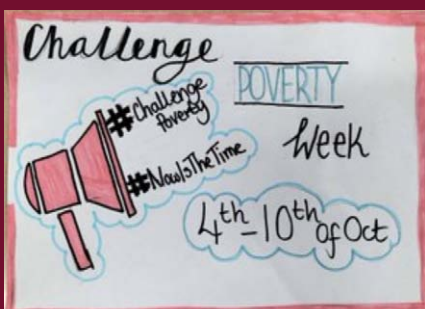 Challenge
POVERTY
Week
#Challenge
Poverty
#NowIsTheTime
4th-10th of Oct